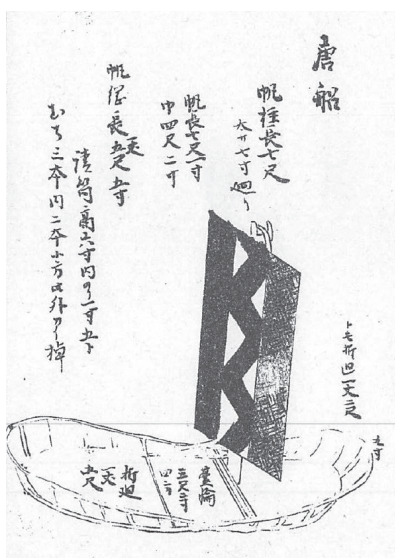 唐船
帆柱長七尺
太サ七寸廻り
帆長七尺一寸
巾四尺二寸
帆綱長一丈五尺五寸
請筒高六寸内の一寸五分
むち三本内二本小方此外の棹
トモ折廻一丈二尺
九寸
台輪
三尺寸
四方
折廻
一丈
五尺